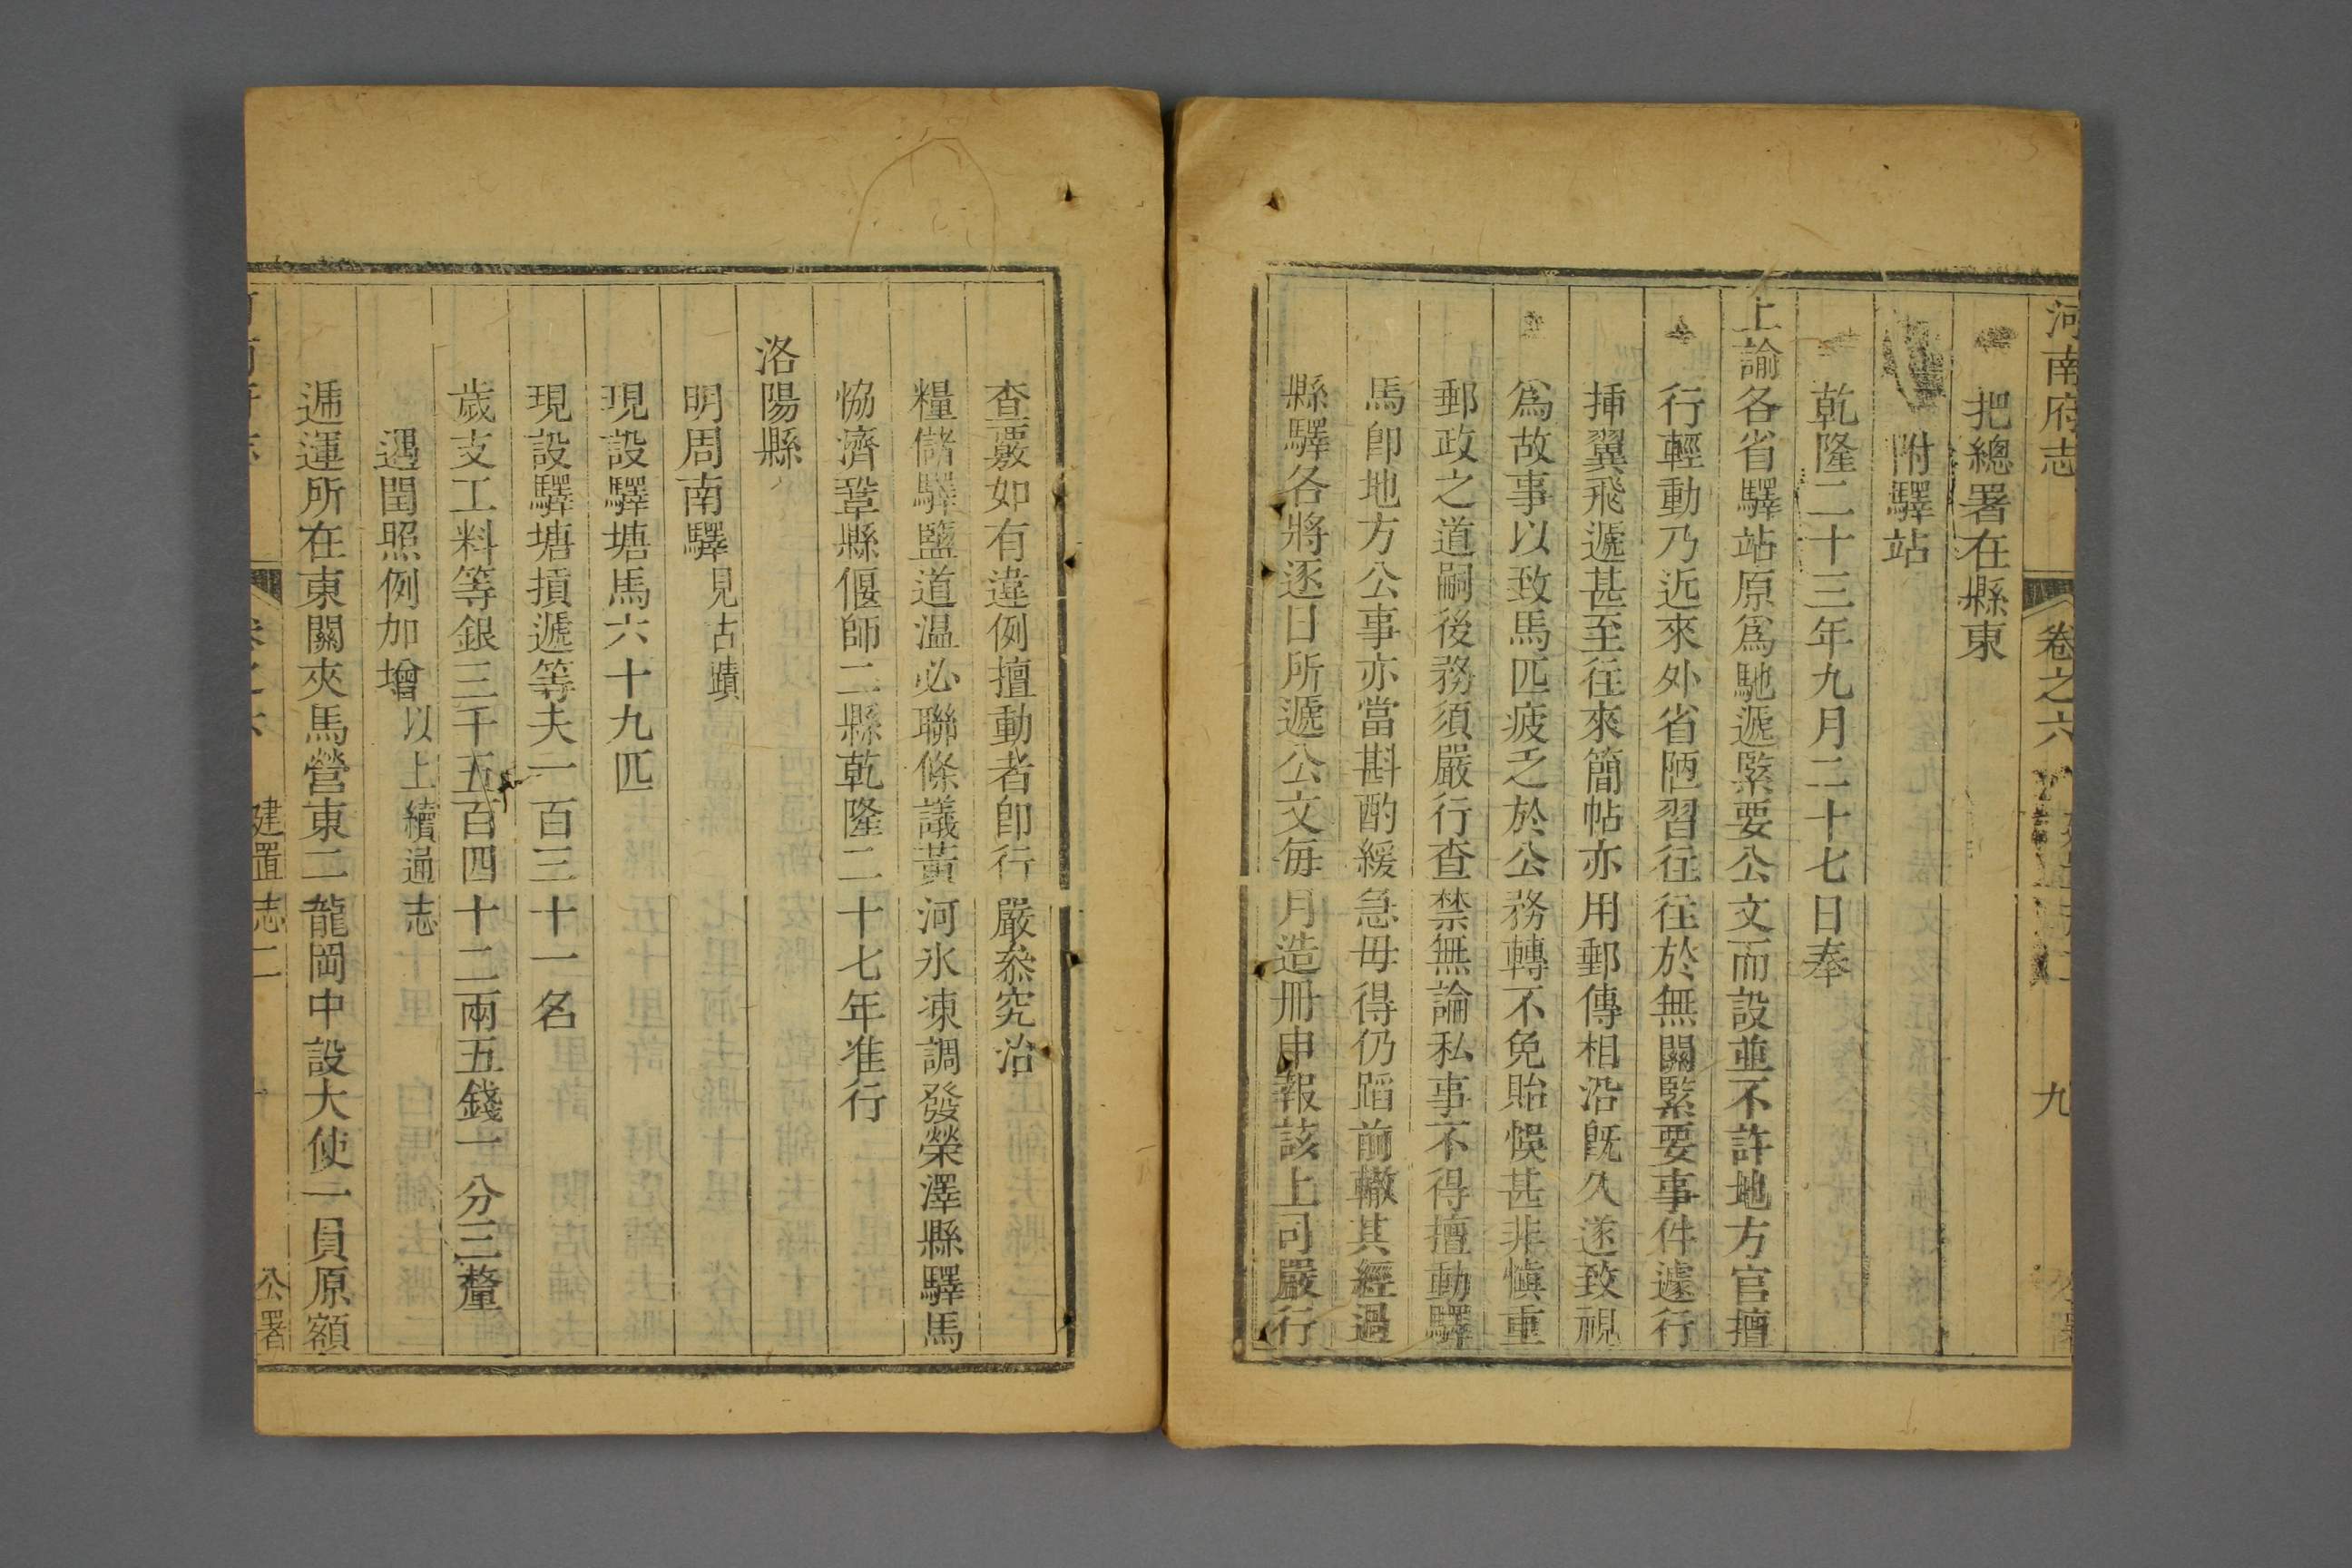 河南府志 卷之六 九
把總署在縣東
附驛站
乾隆二十三年九月二十七日奉
上諭各省驛站原爲馳遞緊要公文而設並不許地方官擅
行輕動乃近來外省陋習往往於無關緊要事件遽行
挿翼飛遞甚至往來簡帖亦用郵傳相沿旣久遂致視
爲故事以致馬匹疲乏於公務轉不免貽悞甚非愼重
郵政之道嗣後務須嚴行查禁無論私事不得擅動驛
馬卽地方公事亦當斟酌緩急毋得仍蹈前轍其經過
縣驛各將逐日所遞公文每月造冊申報該上司嚴行
查覈如有違例擅動者卽行嚴叅究治
糧儲驛鹽道温必聯條議黃河氷凍調發榮澤縣驛馬
恊濟鞏縣偃師二縣乾隆二十七年准行
洛陽縣
明周南驛見古蹟
現設驛塘馬六十九匹
現設驛塘摃遞等夫一百三十一名
歲支工料等銀三千五百四十二兩五錢一分三釐
遇閏照例加增以上續通志
遞運所在東關夾馬營東二龍岡中設大使一員原額
建置志二 公署